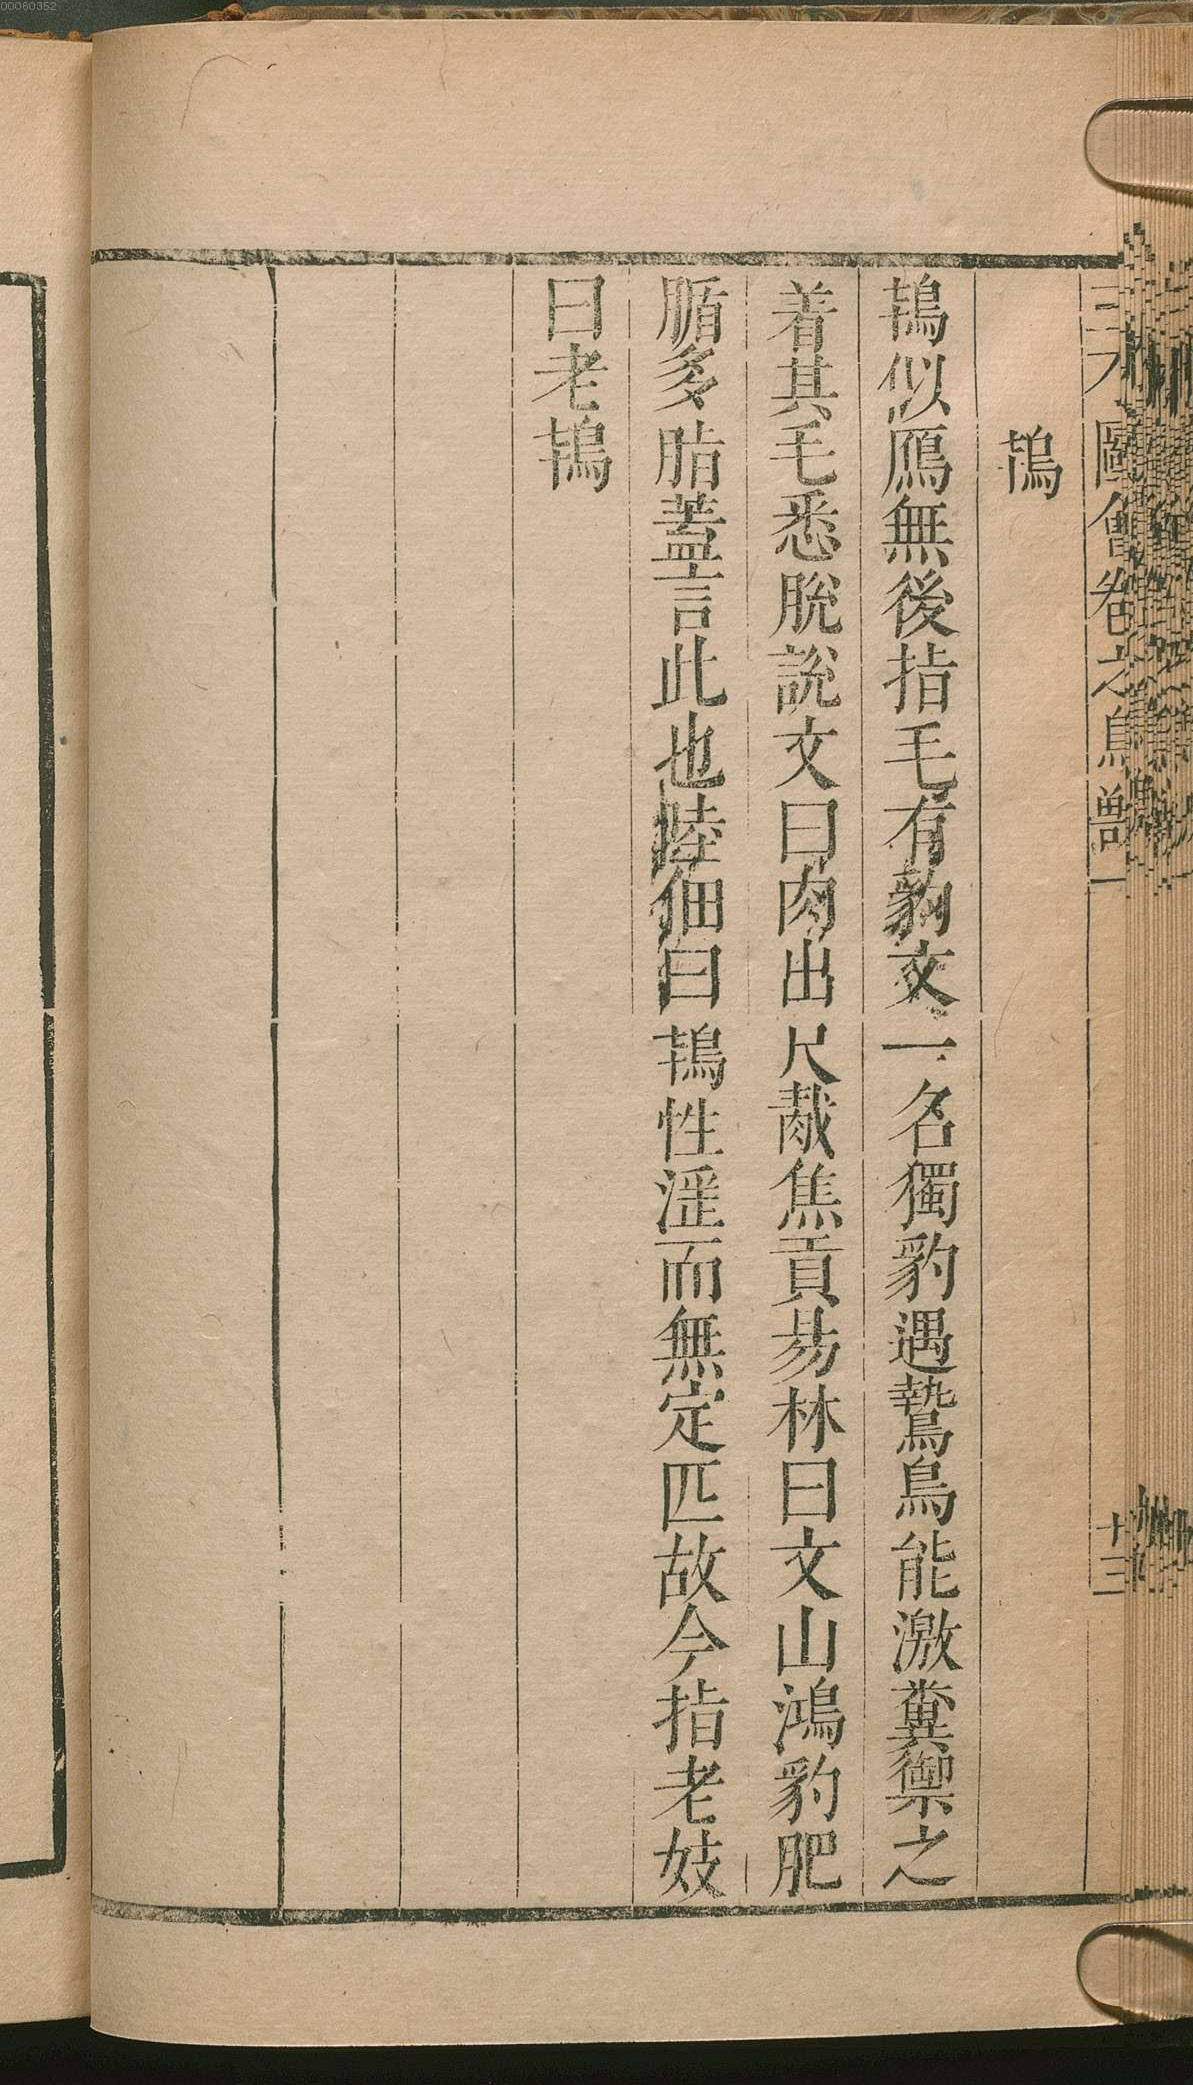 00060352
三才圖會卷之鳥獸一
十三
鴇
鴇似鴈無後指毛有豹文一名獨豹遇鷙鳥能激糞禦之
着其毛悉脫說文曰肉出尺胾焦貢易林曰文山鴻豹肥
腯多脂蓋言此也陸佃曰鴇性淫而無定匹故今指老妓
曰老鴇